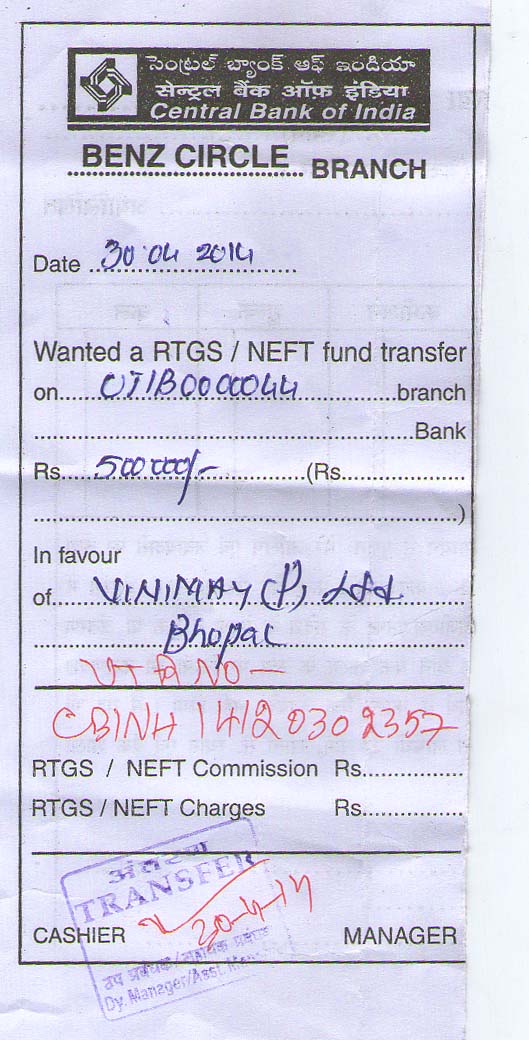 సెంట్రల్ బ్యాంక్ ఆఫ్ ఇండియా
सेन्ट्रल बैंक ऑफ़ इंडिया
Central Bank of India
BENZ CIRCLE BRANCH
Date 30.04 2014
Wanted a RTGS / NEFT fund transfer
on UTIB0000044 branch
Bank
Rs. 500000/- (Rs.
)
In favour
of VINIMAY (P) Ltd
Bhopal
UTR NO —
CBINH 14120302357
RTGS / NEFT Commission Rs.
RTGS / NEFT Charges Rs.
अंतरण
TRANSFER
30-4-14
CASHIER MANAGER
उप प्रबंधक/सहायक प्रबंधक
Dy. Manager/Asst.